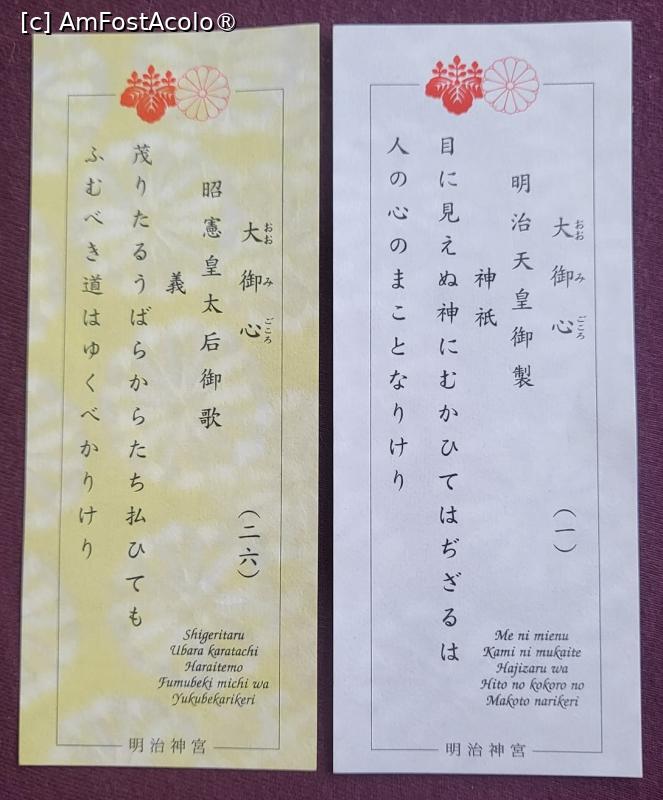 [c] AmFostAcolo®
大御心
おおみごころ
(二六)
昭憲皇太后御歌
義
茂りたるうばらからたち払ひても
ふむべき道はゆくべかりけり
Shigeritaru
Ubara karatachi
Haraitemo
Fumubeki michi wa
Yukubekarikeri
明治神宮
大御心
おおみごころ
(一)
明治天皇御製
神祇
目に見えぬ神にむかひてはぢざるは
人の心のまことなりけり
Me ni mienu
Kami ni mukaite
Hajizaru wa
Hito no kokoro no
Makoto narikeri
明治神宮